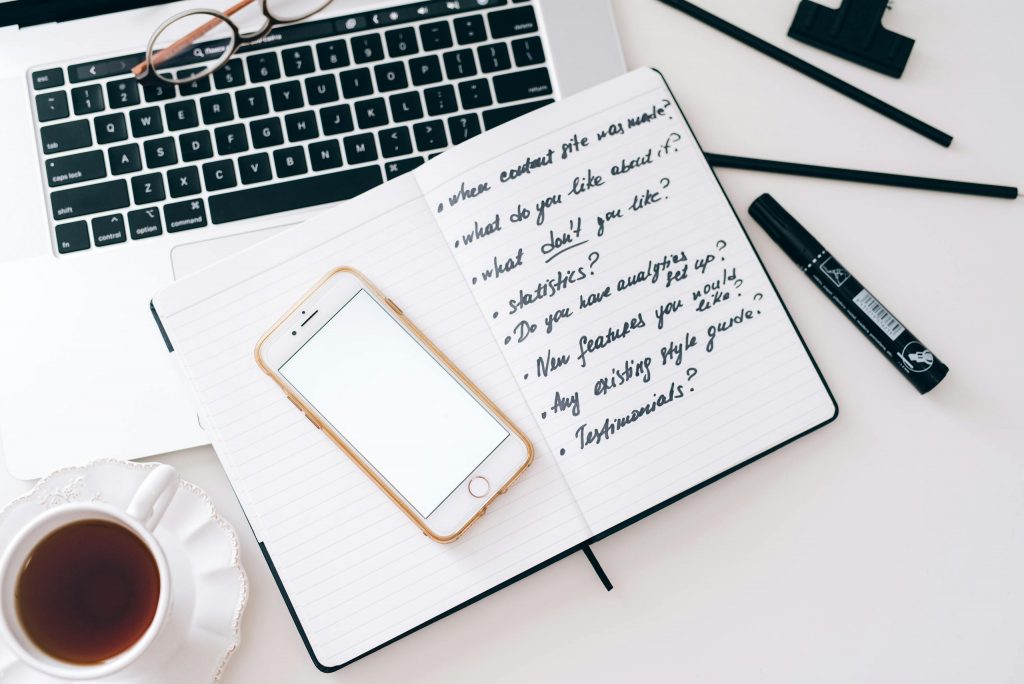 esc
! 1 @ 2 4 5 6 & 7 * 8 9 0
tab Q W E R T Y U I O P { [ } ] | \
caps lock A S D F G H J K L : ; " ' return
shift Z X C V B N M < , > . ? / shift
fn control option command
• when content site was made?
• what do you like about it?
• what don't you like?
• statistics?
• Do you have analytics
set up?
• New features you would
like?
• Any existing style guide?
• Testimonials?